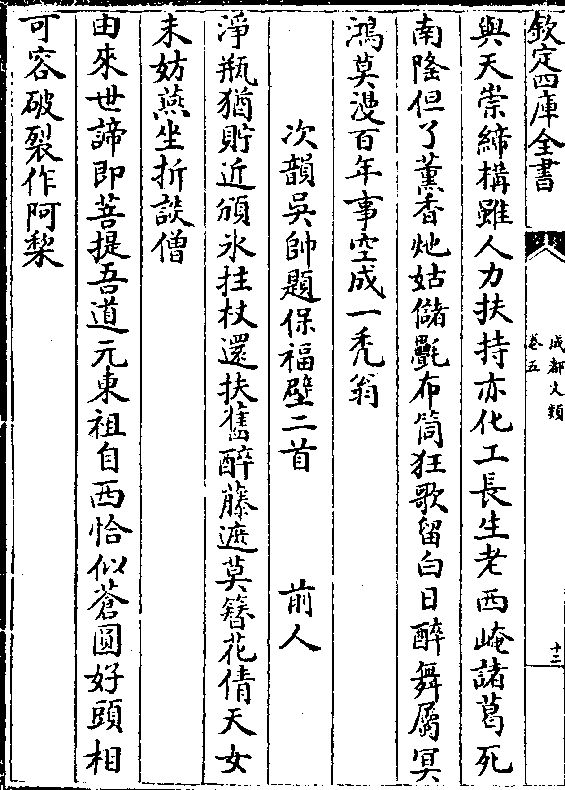 欽定四庫全書
成都文類
卷五
十二
與天崇締構雖人力扶持亦化工長生老西崦諸葛死
南隆但了薰香灺姑儲氎布筒狂歌留白日醉舞屬冥
鴻莫漫百年事空成一禿翁
次韻吳帥題保福壁二首　前人
淨瓶猶貯近頒氷拄杖還扶舊醉藤遮莫簪花倩天女
未妨燕坐折談僧
由來世諦即菩提吾道元東祖自西恰似蒼圓好頭相
可容破裂作阿梨